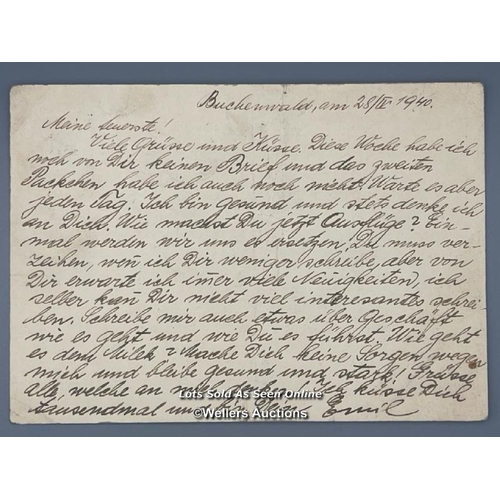 Buchenwald, am 28/IV 1940.
Meine teuerste!
Viele Grüsse und Küsse. Diese Woche habe ich
noch von Dir keinen Brief und das zweiten
Päckchen habe ich auch noch nicht. Warte es aber
jeden Tag. Ich bin gesund und stets denke ich
an Dich. Wie machst Du jetzt Ausflüge? Ein-
mal werden wir uns es ersetzen. Du muss ver-
zeihen, wen ich Dir weniger schreibe, aber von
Dir erwarte ich imer viele Neuigkeiten, ich
selber kan Dir nicht viel interesantes schrei-
ben. Schreibe mir auch etwas über Geschäft
wie es geht und wie Du es führst. Wie geht
es dem Milek? Mache Dich keine Sorgen wegen
mich und bleibe gesund und stark! Grüsse
alle, welche an mich denken. Ich küsse Dich
tausendmal und Emil
Lots Sold As Seen Online
©Wellers Auctions